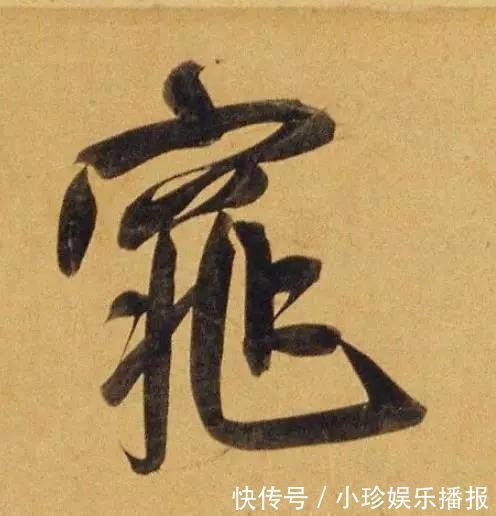 窕
快传号/小珍娱乐播报